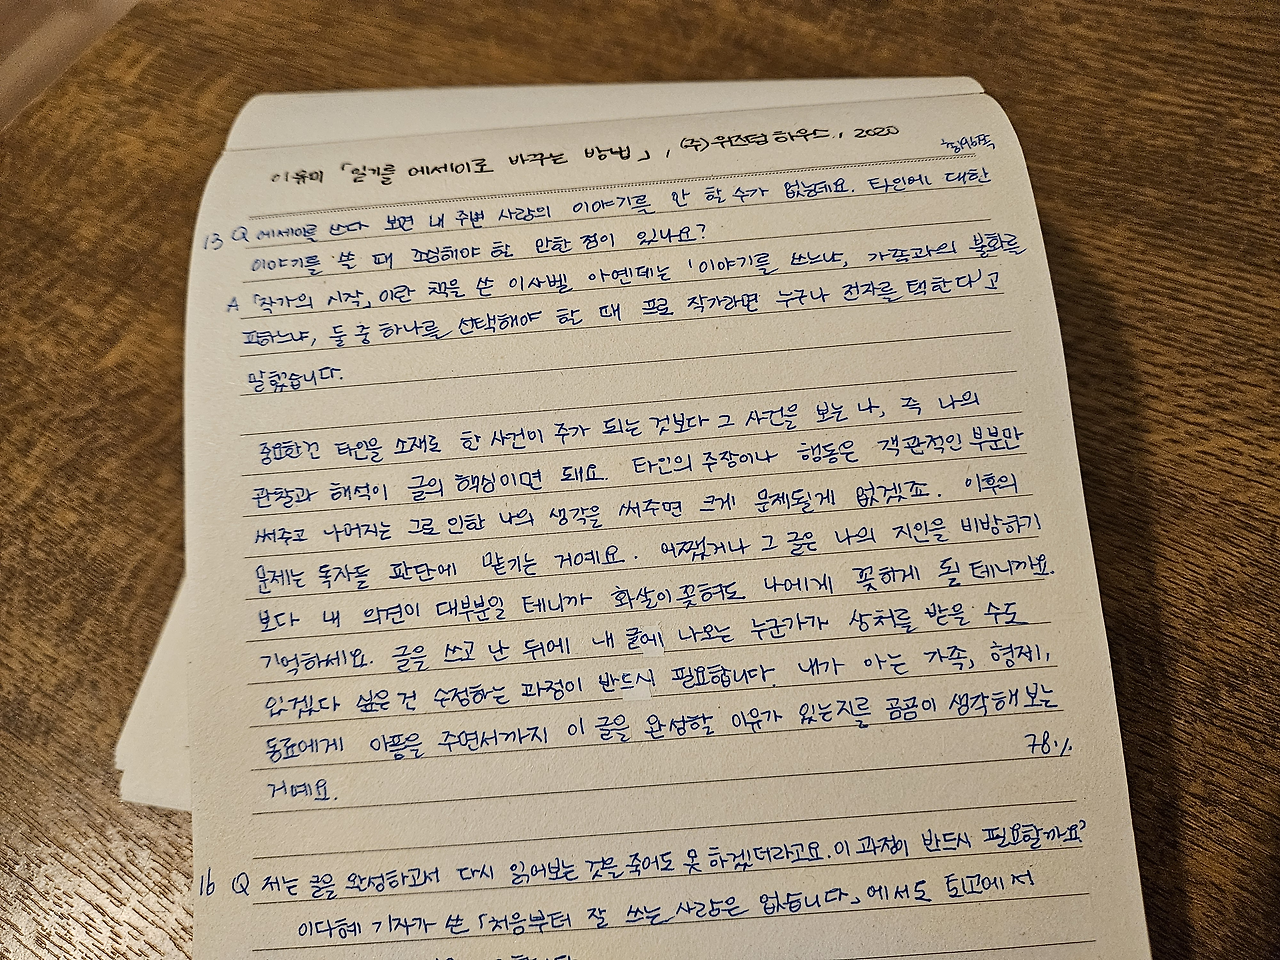 이유미 「일기를 에세이로 바꾸는 방법」, (주)위즈덤하우스, 2020
13 Q 에세이를 쓰다 보면 내 주변 사람의 이야기를 안 할 수가 없는데요. 타인에 대한
이야기를 쓸 때 조심해야 할 만한 점이 있나요?
A 「작가의 시작」이란 책을 쓴 이사벨 아옌데는 '이야기를 쓰느냐, 가족과의 불화를
피하느냐, 둘 중 하나를 선택해야 할 때 프로 작가라면 누구나 전자를 택한다'고
말했습니다.
중요한건 타인을 소재로 한 사건이 주가 되는 것보다 그 사건을 보는 나, 즉 나의
관찰과 해석이 글의 핵심이면 돼요. 타인의 주장이나 행동은 객관적인 부분만
써주고 나머지는 그로 인한 나의 생각을 써주면 크게 문제될게 없겠죠. 이후의
문제는 독자들 판단에 맡기는 거예요. 어쨌거나 그 글은 나의 지인을 비방하기
보다 내 의견이 대부분일 테니까 화살이 꽂혀도 나에게 꽂하게 될 테니까요.
기억하세요. 글을 쓰고 난 뒤에 내 글에 나오는 누군가가 상처를 받을 수도
있겠다 싶은 건 수정하는 과정이 반드시 필요합니다. 내가 아는 가족, 형제,
동료에게 아픔을 주면서까지 이 글을 완성할 이유가 있는지를 곰곰이 생각해 보는
거예요.
78%
16 Q 저는 글을 완성하고서 다시 읽어보는 것을 죽어도 못 하겠더라고요. 이 과정이 반드시 필요할까요?
이다혜 기자가 쓴 「처음부터 잘 쓰는 사람은 없습니다」에서도 퇴고에서